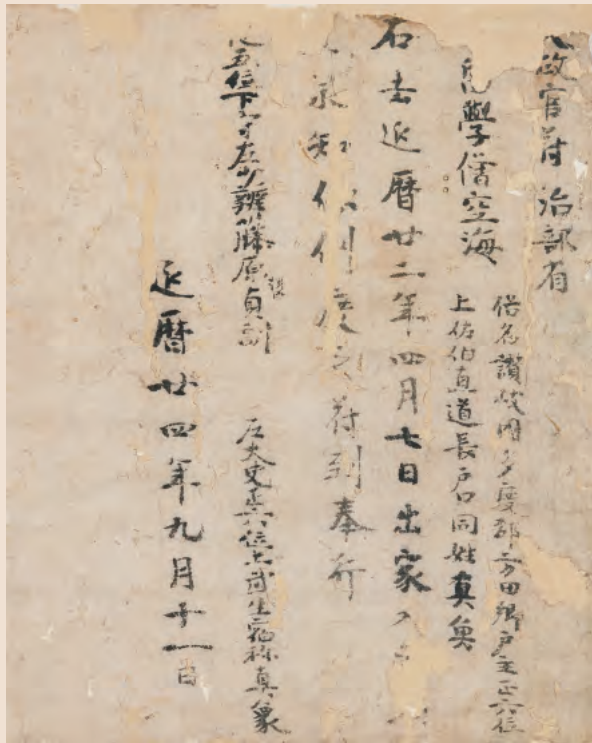 政官符 治部省
學僧空海
俗名讃岐國多度郡方田郷戸主正六位
上佐伯直道長戸口同姓真魚
右去延暦廿二年四月七日出家入
承知依例度之符到奉行
五位下守左少辨藤原貞嗣
左大史正六位上武生宿祢真象
延暦廿四年九月十一日